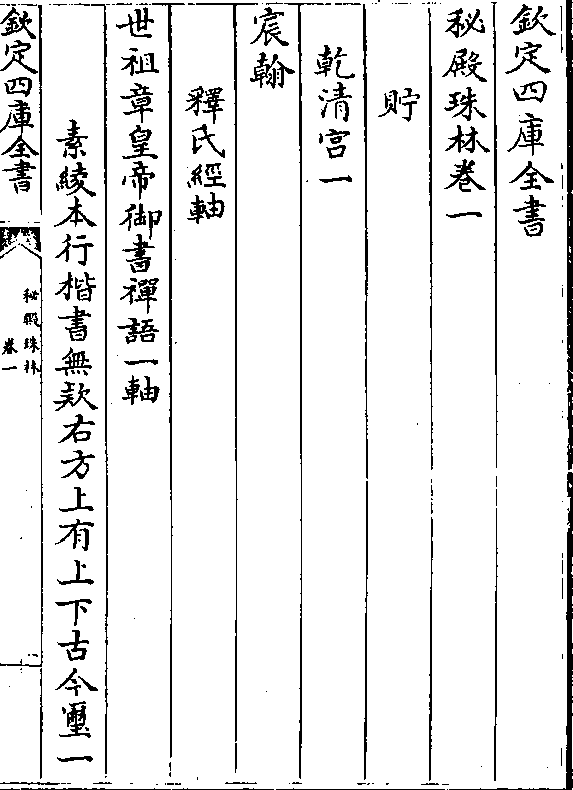 欽定四庫全書
秘殿珠林卷一
貯
乾清宮一
宸翰
釋氏經軸
世祖章皇帝御書禪語一軸
素綾本行楷書無欵右方上有上下古今璽一
欽定四庫全書
秘殿珠林
卷一